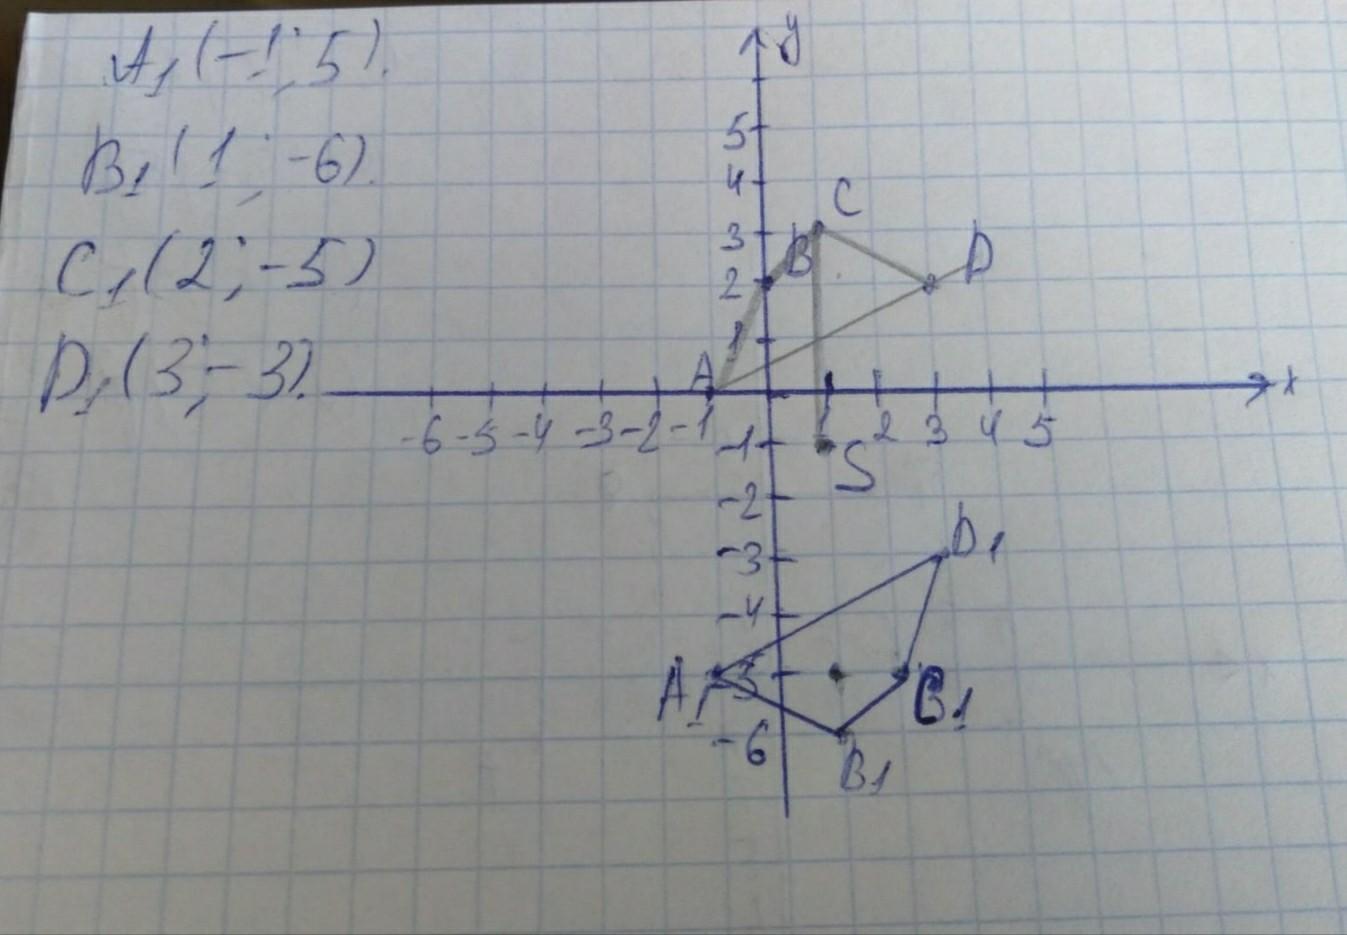 A1 (-1; 5).
B1 (1; -6).
C1 (2; -5)
D1 (3; -3).
y
5
4
3
2
1
C
B
D
A
x
-6 -5 -4 -3 -2 -1 1 2 3 4 5
-1
S
-2
-3
D1
-4
A1
-5
B1
-6
B1